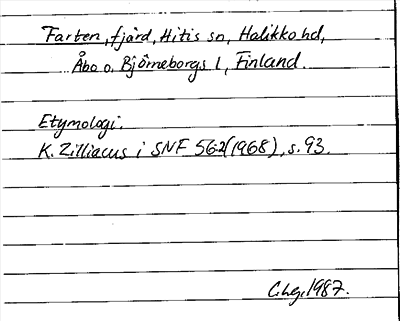 Farten, fjärd, Hitis sn, Halikko hd,
Åbo o. Björneborgs l, Finland.
Etymologi.
K. Zilliacus i SNF 562(1968), s. 93.
1987.